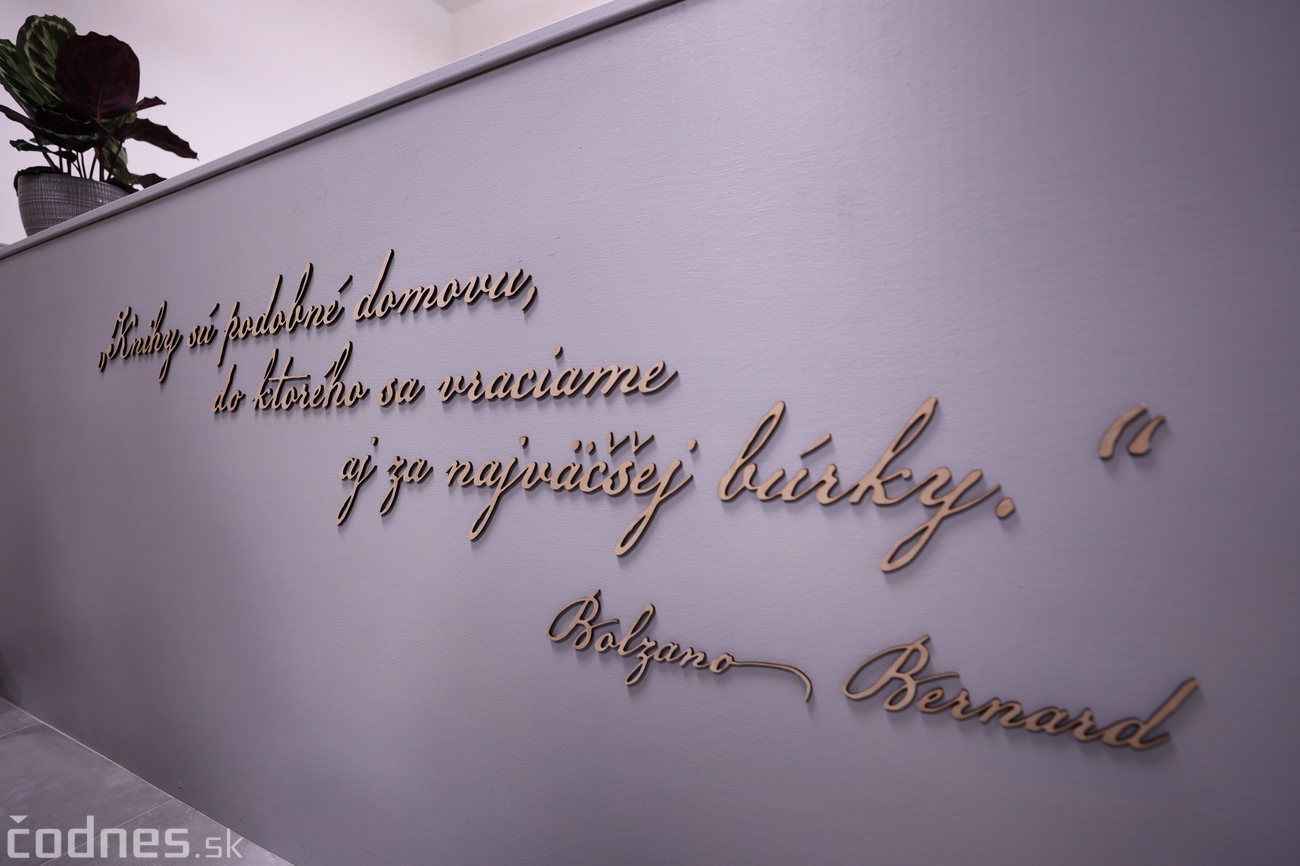 „Knihy sú podobné domovu,
do ktorého sa vraciame
aj za najväčšej búrky.“
Bolzano Bernard
čodnes.sk